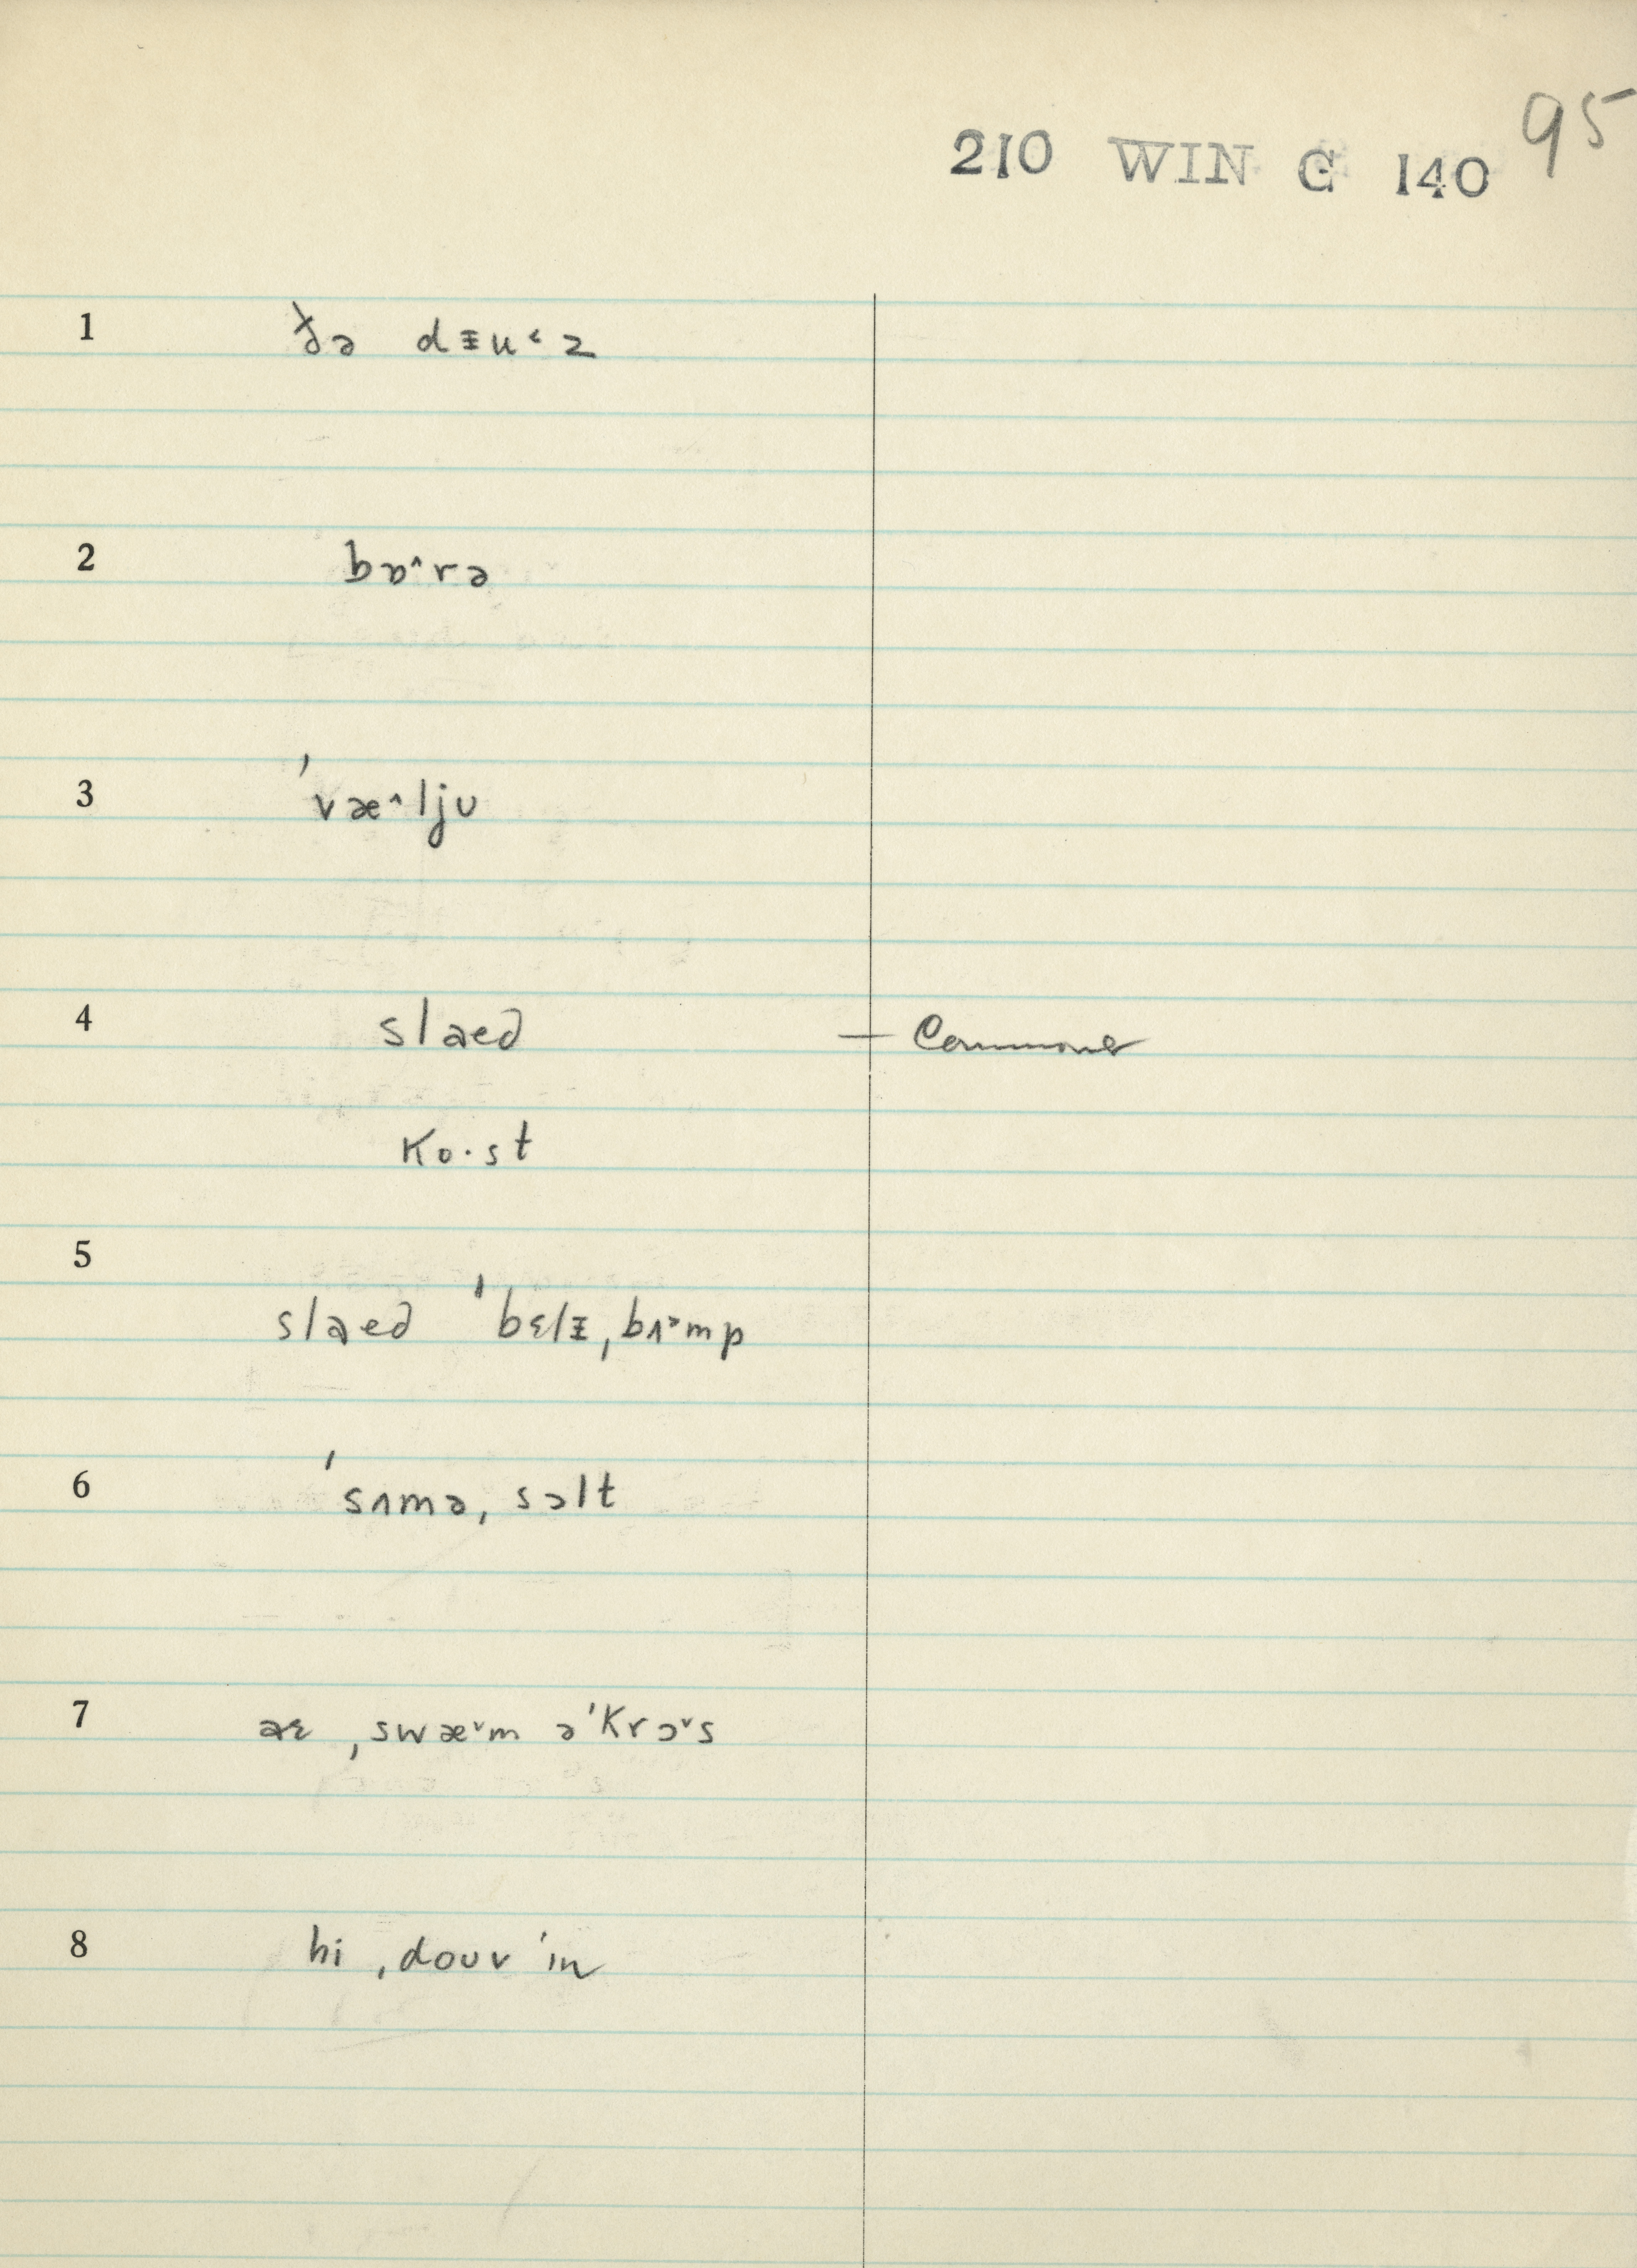 95
210 WIN G 140
1 ðə dᵻu˂z
2 bɒ˄rə
3 ˈvæ˄ljʊ
4 slaed — Commoner
ko·st
5 slaed ˈbɛlᵻˌbʌ˃mp
6 ˈsʌməˌsɔlt
7 aɛ ˌswæ˅m əˈkrɔ˅s
8 hi ˌdouv ˈin